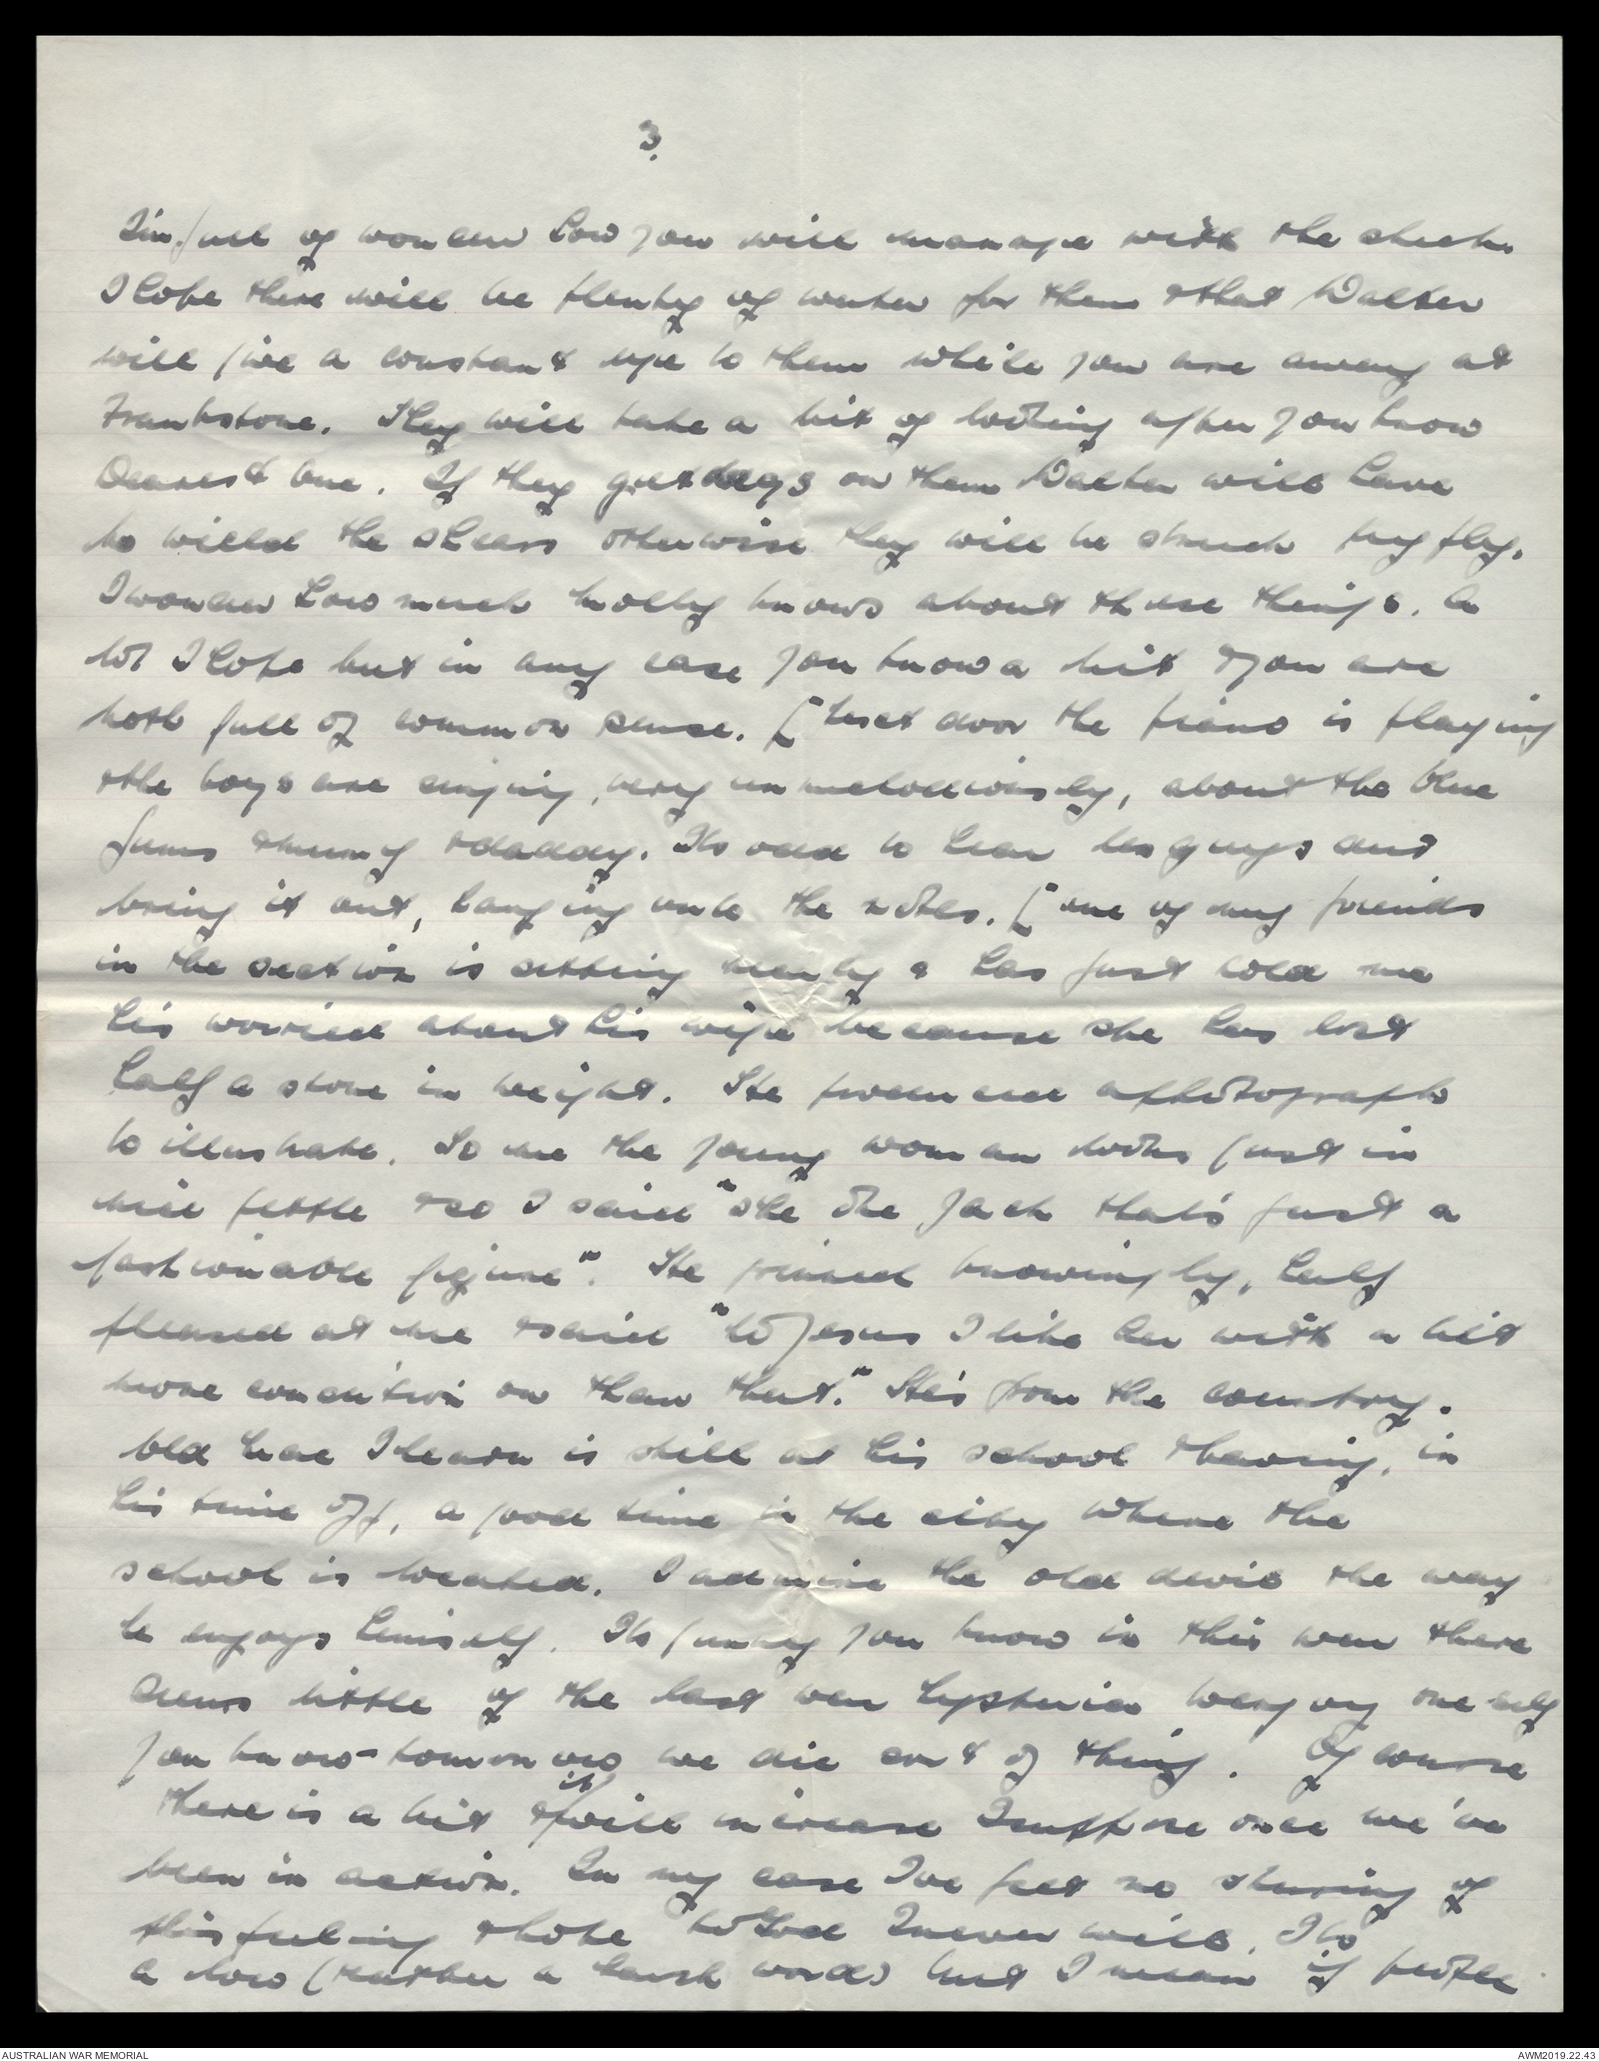 3.
I'm full of wonder how you will manage with the sheep.
I hope there will be plenty of water for them & that Walter
will give a constant eye to them while you are away at
Frankstone. They will take a bit of looking after you know
Dearest one. If they get dags on them Walter will have
to wield the shears otherwise they will be struck by fly.
I wonder how much Molly knows about these things. A
lot I hope but in any case you know a bit & you are
both full of common sense. [Next door the piano is playing
& the boys are singing, very unmelodiously, about the blue
gums & mummy & daddy. Its odd to hear
bring it out, hanging onto the notes. [One of my friends
in the section is sitting nearby & has just told me
his worried about his wife because she has lost
half a stone in weight. He produced a photograph
to illustrate. To me the young woman looks just in
nice fettle & so I said "she OK Jack that's just a
fashionable figure". He grinned knowingly, half
pleased at me & said "to Jesus I like her with a bit
more condition on than that." He's from the country.
Old Mac I learn is still at his school & having, in
his time off, a good time in the city where the
school is located. I admire the old devil the way
he enjoys himself. Its funny you know in this war there
seems little of the last war hysteria
you know - tomorrow we die sort of thing. Of course
there is a bit & it will increase I suppose once we've
been in action. In my case I've felt no stirring of
this feeling & hope to God I never will. Its
a low (rather a harsh word) but I mean if people
AUSTRALIAN WAR MEMORIAL
AWM2019.22.43